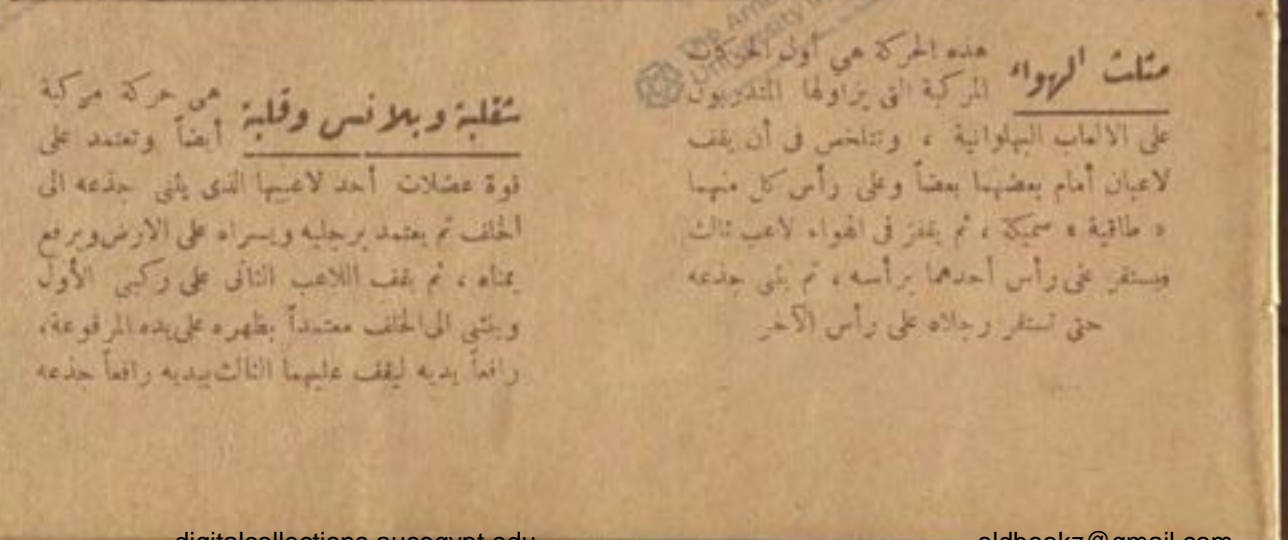 مثلث الهواء
هذه الحركة هي أول الحركات
المركبة التي يزاولها المتدربون
على الالعاب البهلوانية ، وتتلخص في أن يقف
لاعبان أمام بعضهما بعضاً وعلى رأس كل منهما
« طاقية » سميكة ، ثم يقفز في الهواء لاعب ثالث
فيستقر على رأس أحدهما برأسه ، ثم يثني جذعه
حتى تستقر رجلاه على رأس الآخر
شقلبة وبلانس وقلبة
هي حركة مركبة
أيضاً وتعتمد على
قوة عضلات أحد لاعبيها الذي يثني جذعه الى
الخلف ثم يعتمد برجليه ويسراه على الارض ويرفع
يمناه ، ثم يقف اللاعب الثاني على ركبتي الأول
وينثني الى الخلف معتمداً بظهره على يده المرفوعة،
رافعاً يديه ليقف عليهما الثالث بيديه رافعاً جذعه